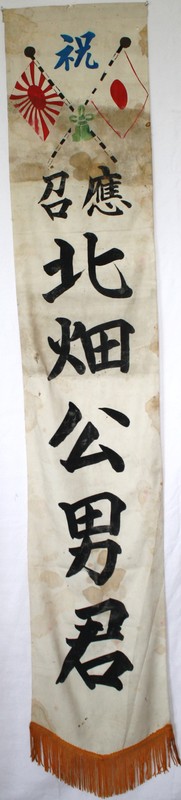 祝
應召
北畑公男君